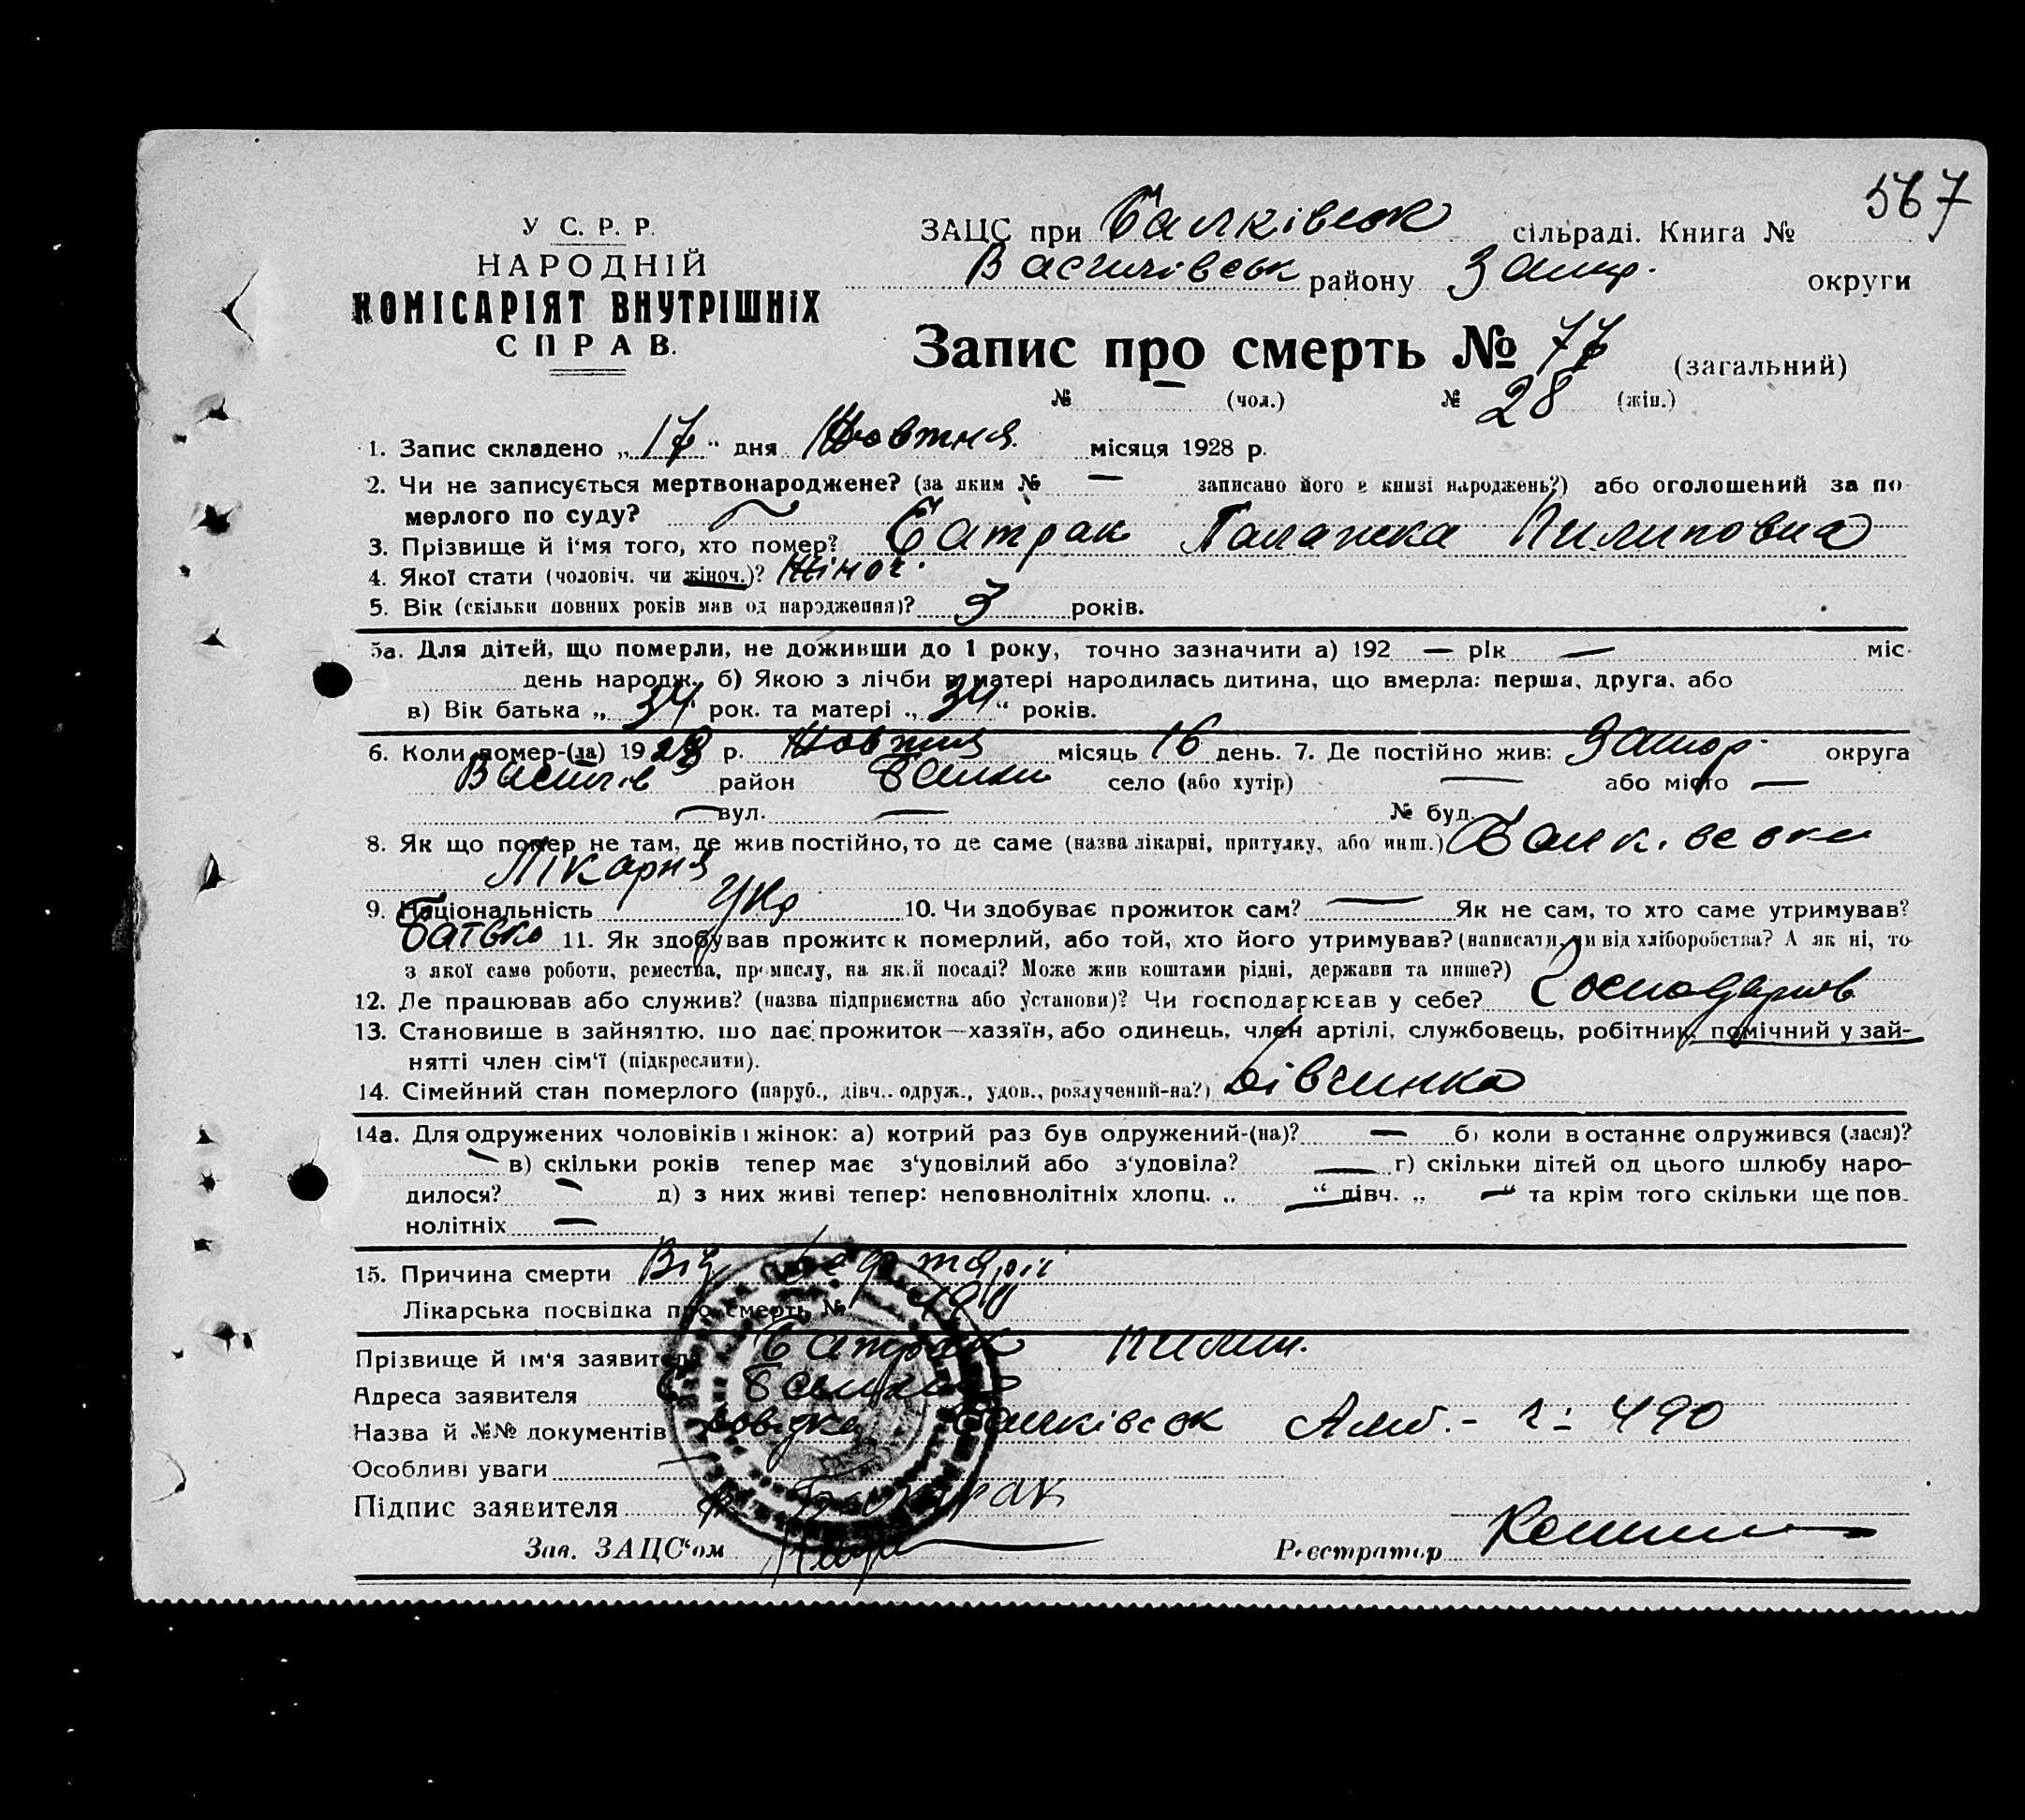 567
У С. Р. Р.
НАРОДНІЙ
КОМІСАРІЯТ ВНУТРІШНІХ
СПРАВ.
ЗАЦС при Балківськ сільраді. Книга №
Василівськ району Запор. округи
Запис про смерть № 77 (загальний)
№ — (чол.) № 28 (жін.)
1. Запис складено „17“ дня Жовтня місяця 1928 р.
2. Чи не записується мертвонароджене? (за яким № — записано його в книзі народжень?) або оголошений за по
мерлого по суду?
3. Прізвище й і‘мя того, хто помер? Батрак Палажка Пилиповна
4. Якої стати (чоловіч. чи жіноч.)? Жіноч.
5. Вік (скільки повних років мав од народження)? 3 років.
5а. Для дітей, що померли, не доживши до 1 року, точно зазначити а) 192 — рік — міс.
день народж. б) Якою з лічби в матері народилась дитина, що вмерла: перша, друга, або
в) Вік батька „34“ рок. та матері „34“ років.
6. Коли помер-(ла) 1928 р. Жовтня місяць 16 день. 7. Де постійно жив: Запор. округа
Василів район Балки село (або хутір) — або місто —
— вул. — № буд.
8. Як що помер не там, де жив постійно, то де саме (назва лікарні, притулку, або инш.)
Лікарня
9. Національність Укр 10. Чи здобуває прожиток сам? — Як не сам, то хто саме утримував?
Батько 11. Як здобував прожиток померлий, або той, хто його утримував? (написати, чи від хліборобства? А як ні, то
з якої саме роботи, ремества, промислу, на якій посаді? Може жив коштами рідні, держави та инше?)
12. Де працював або служив? (назва підприємства або установи)? Чи господарював у себе? Господарюв
13. Становище в зайняттю, що дає прожиток—хазяїн, або одинець, член артілі, службовець, робітник, помічний у зай-
нятті член сім‘ї (підкреслити).
14. Сімейний стан померлого (паруб., дівч., одруж., удов., розлучений-на?) Дівчинка
14а. Для одружених чоловіків і жінок: а) котрий раз був одружений-(на)? — б) коли в останнє одружився (лася)?
— в) скільки років тепер має з‘удовілий або з‘удовіла? — г) скільки дітей од цього шлюбу наро-
дилося? — д) з них живі тепер: неповнолітніх хлопц. „ — “ дівч. „ — “ та крім того скільки ще пов-
нолітніх —
15. Причина смерти Від
Лікарська посвідка про смерть № 490
Прізвище й ім‘я заявителя Батрак Пилип.
Адреса заявителя с. Балки
Назва й №№ документів Довідка Балківськ Амб. - ч: 490
Особливі уваги —
Підпис заявителя Батрак
Зав. ЗАЦС‘ом
Реєстратор